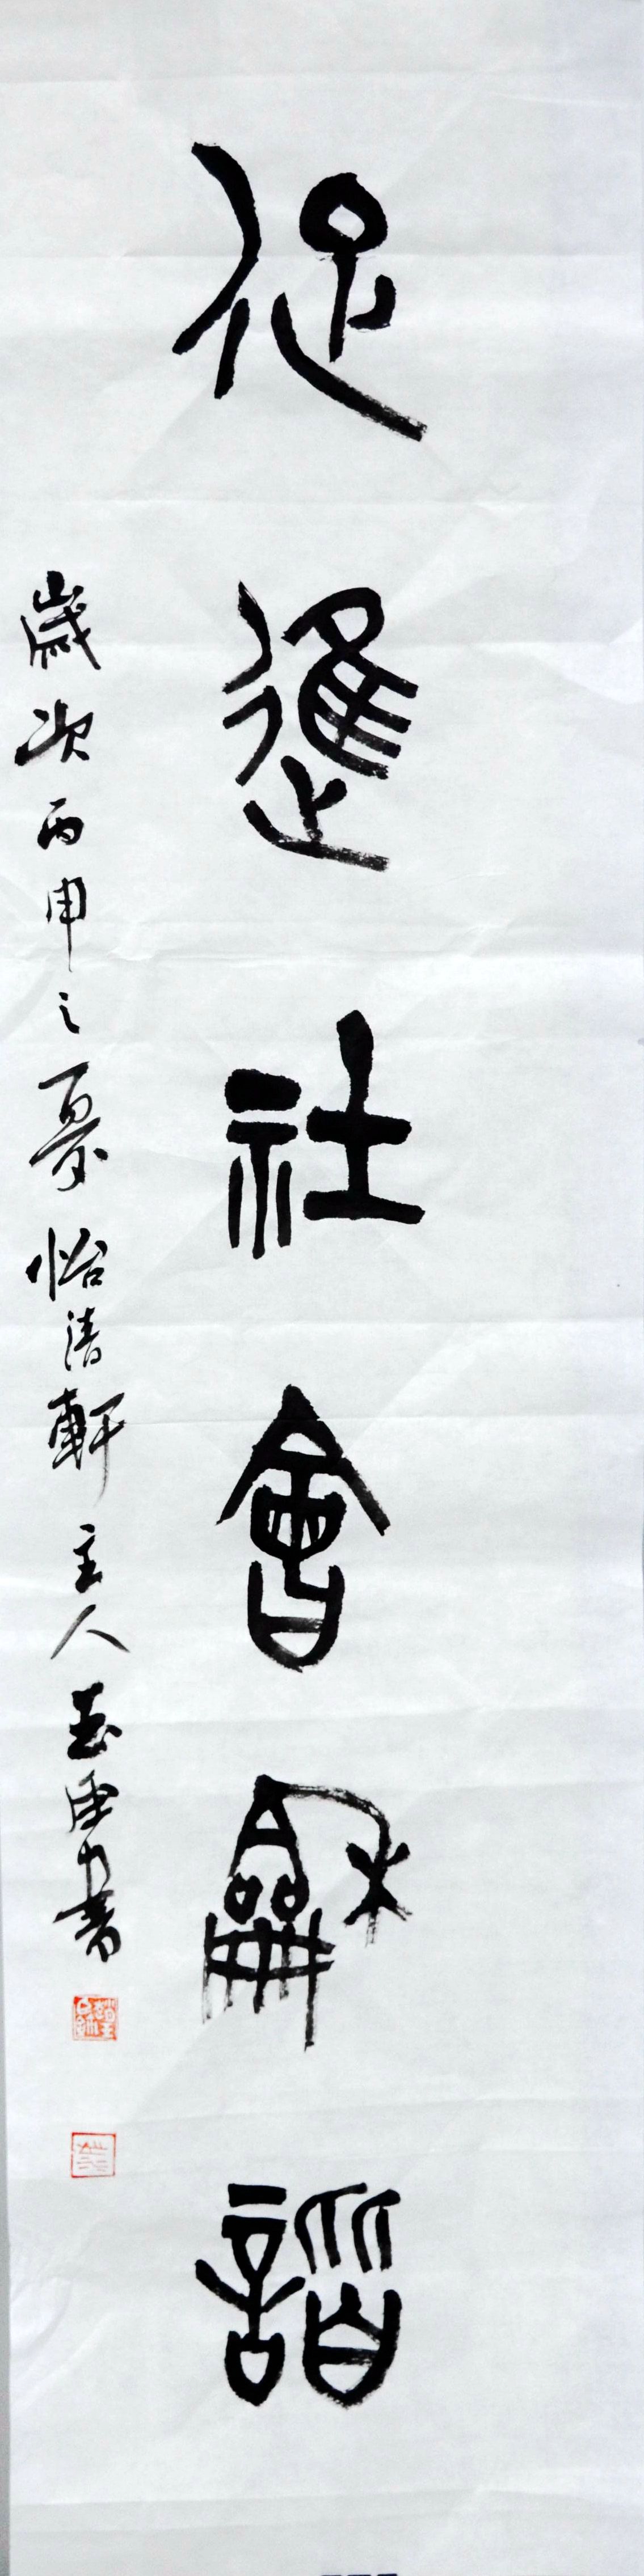 促進社會龢諧
歲次丙申之夏怡清軒主人玉書